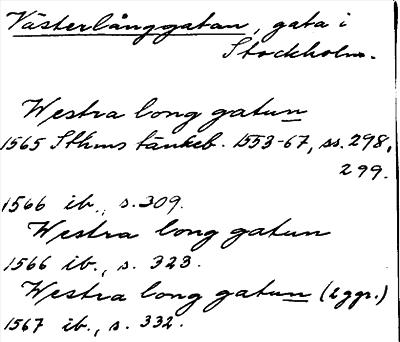 Västerlånggatan, gata i
Stockholm.
Westra long gatun
1565 Sthms tänkeb. 1553-67, ss. 298,
299.
1566 ib., s. 309.
Westra long gatun
1566 ib., s. 323.
Westra long gatun (2 ggr.)
1567 ib., s. 332.